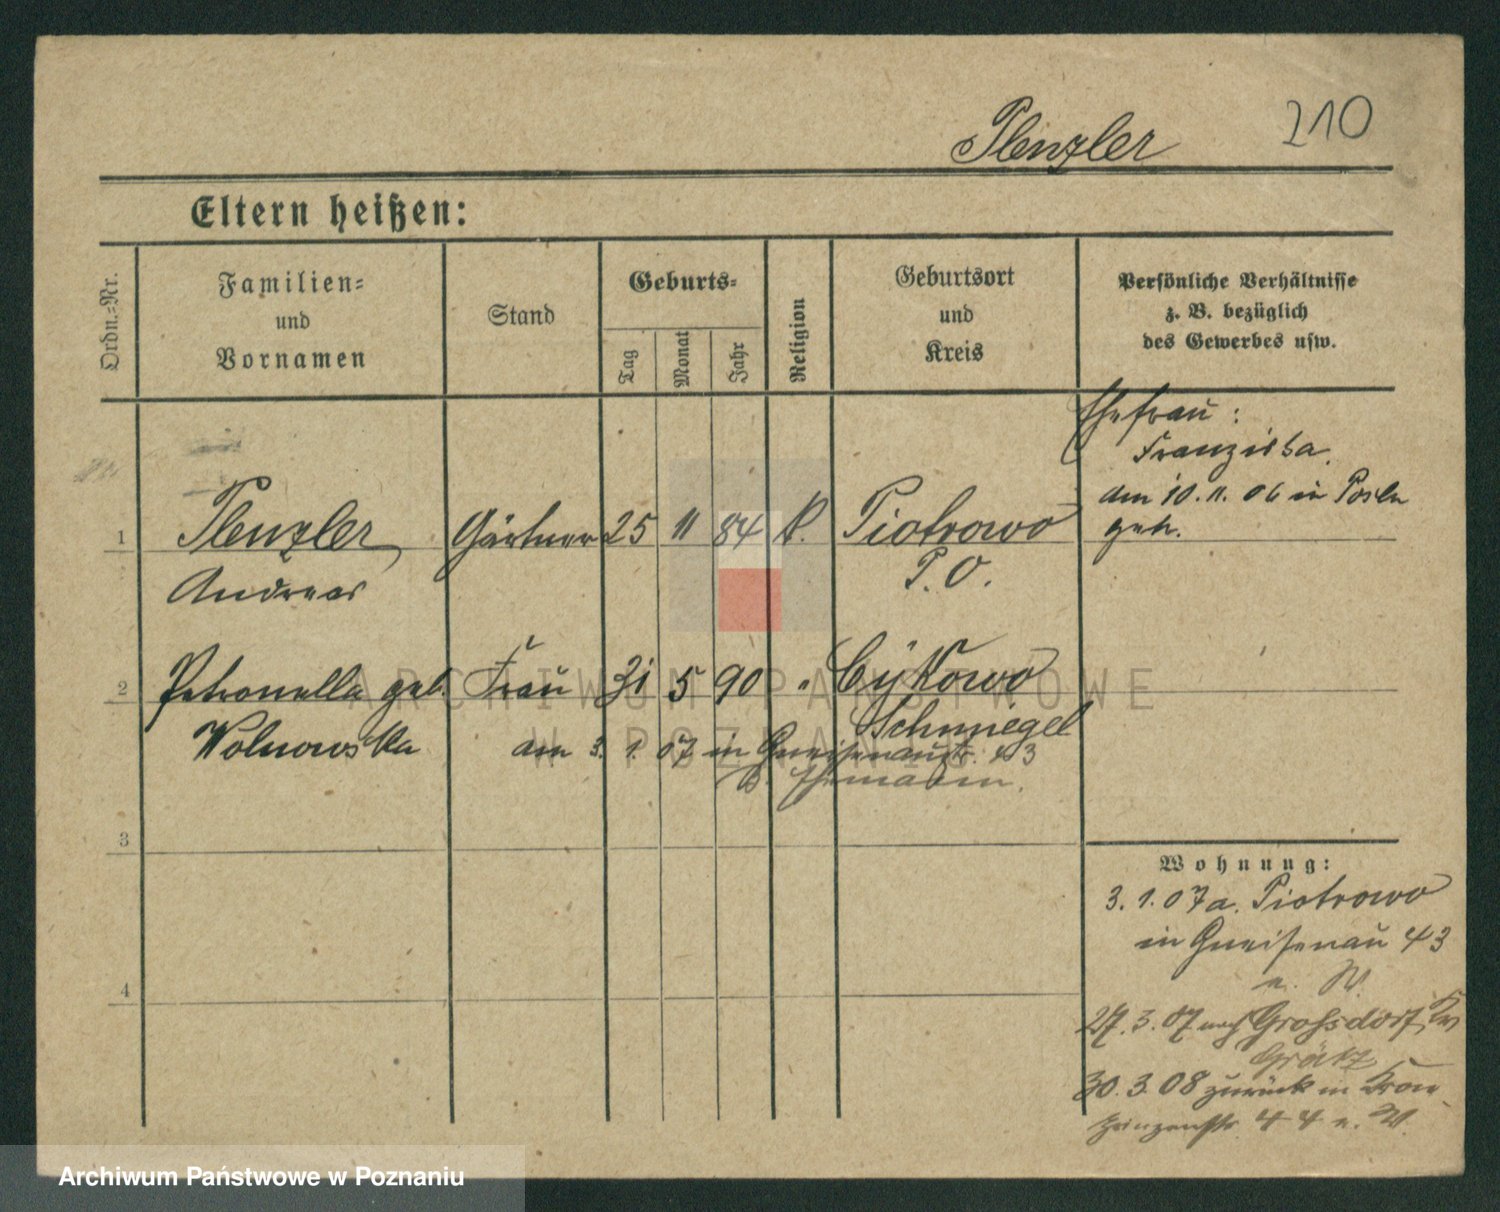 Plenzler
210
Eltern heißen:
Ordn.-Nr.
Familien-
und
Vornamen
Stand
Geburts-
Tag
Monat
Jahr
Religion
Geburtsort
und
Kreis
Persönliche Verhältnisse
z. B. bezüglich
des Gewerbes usw.
Ehefrau:
Franziska
den 10.11.06 in Posen
1 Plenzler Gärtner 25 11 84 k. Piotrowo
Andreas P. O.
2 Petronella geb. Frau 31 5 90 " Cykowo
Wolnowska Schmiegel
am 3. 1. 07 in Gneisenaustr. 43
b. Ehemann.
3
4
Wohnung:
3. 1. 07 a. Piotrowo
in Gneisenau 43
n. W.
27. 3. 07 nach Grossdorf, Kr
Grätz
30. 3. 08 zurück in Kron-
prinzenstr. 44 n. W.
ARCHIWUM PAŃSTWOWE
W POZNANIU
Archiwum Państwowe w Poznaniu